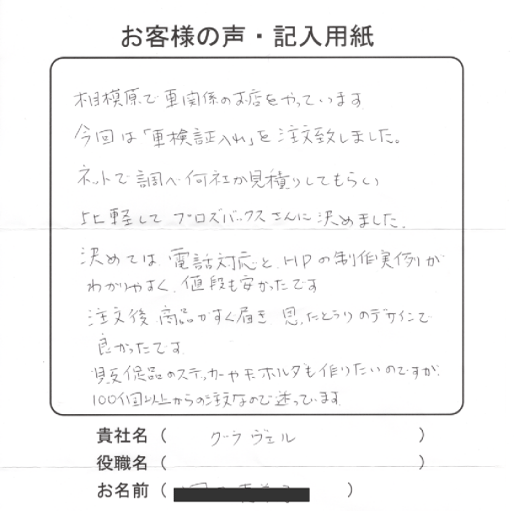 お客様の声・記入用紙
相模原で車関係のお店をやっています
今回は「車検証入れ」を注文致しました。
ネットで調べ何社か見積りしてもらい
比較して プロズバックスさんに決めました。
決めては 電話対応と、HPの制作実例が
わかりやすく、値段も安かったです
注文後 商品がすぐ届き 思ったとうりのデザインで
良かったです
販促品のステッカーやキーホルダも作りたいのですが
100個以上からの注文なので迷っています
貴社名（ クーラ ヴェル ）
役職名（ ）
お名前（ ）